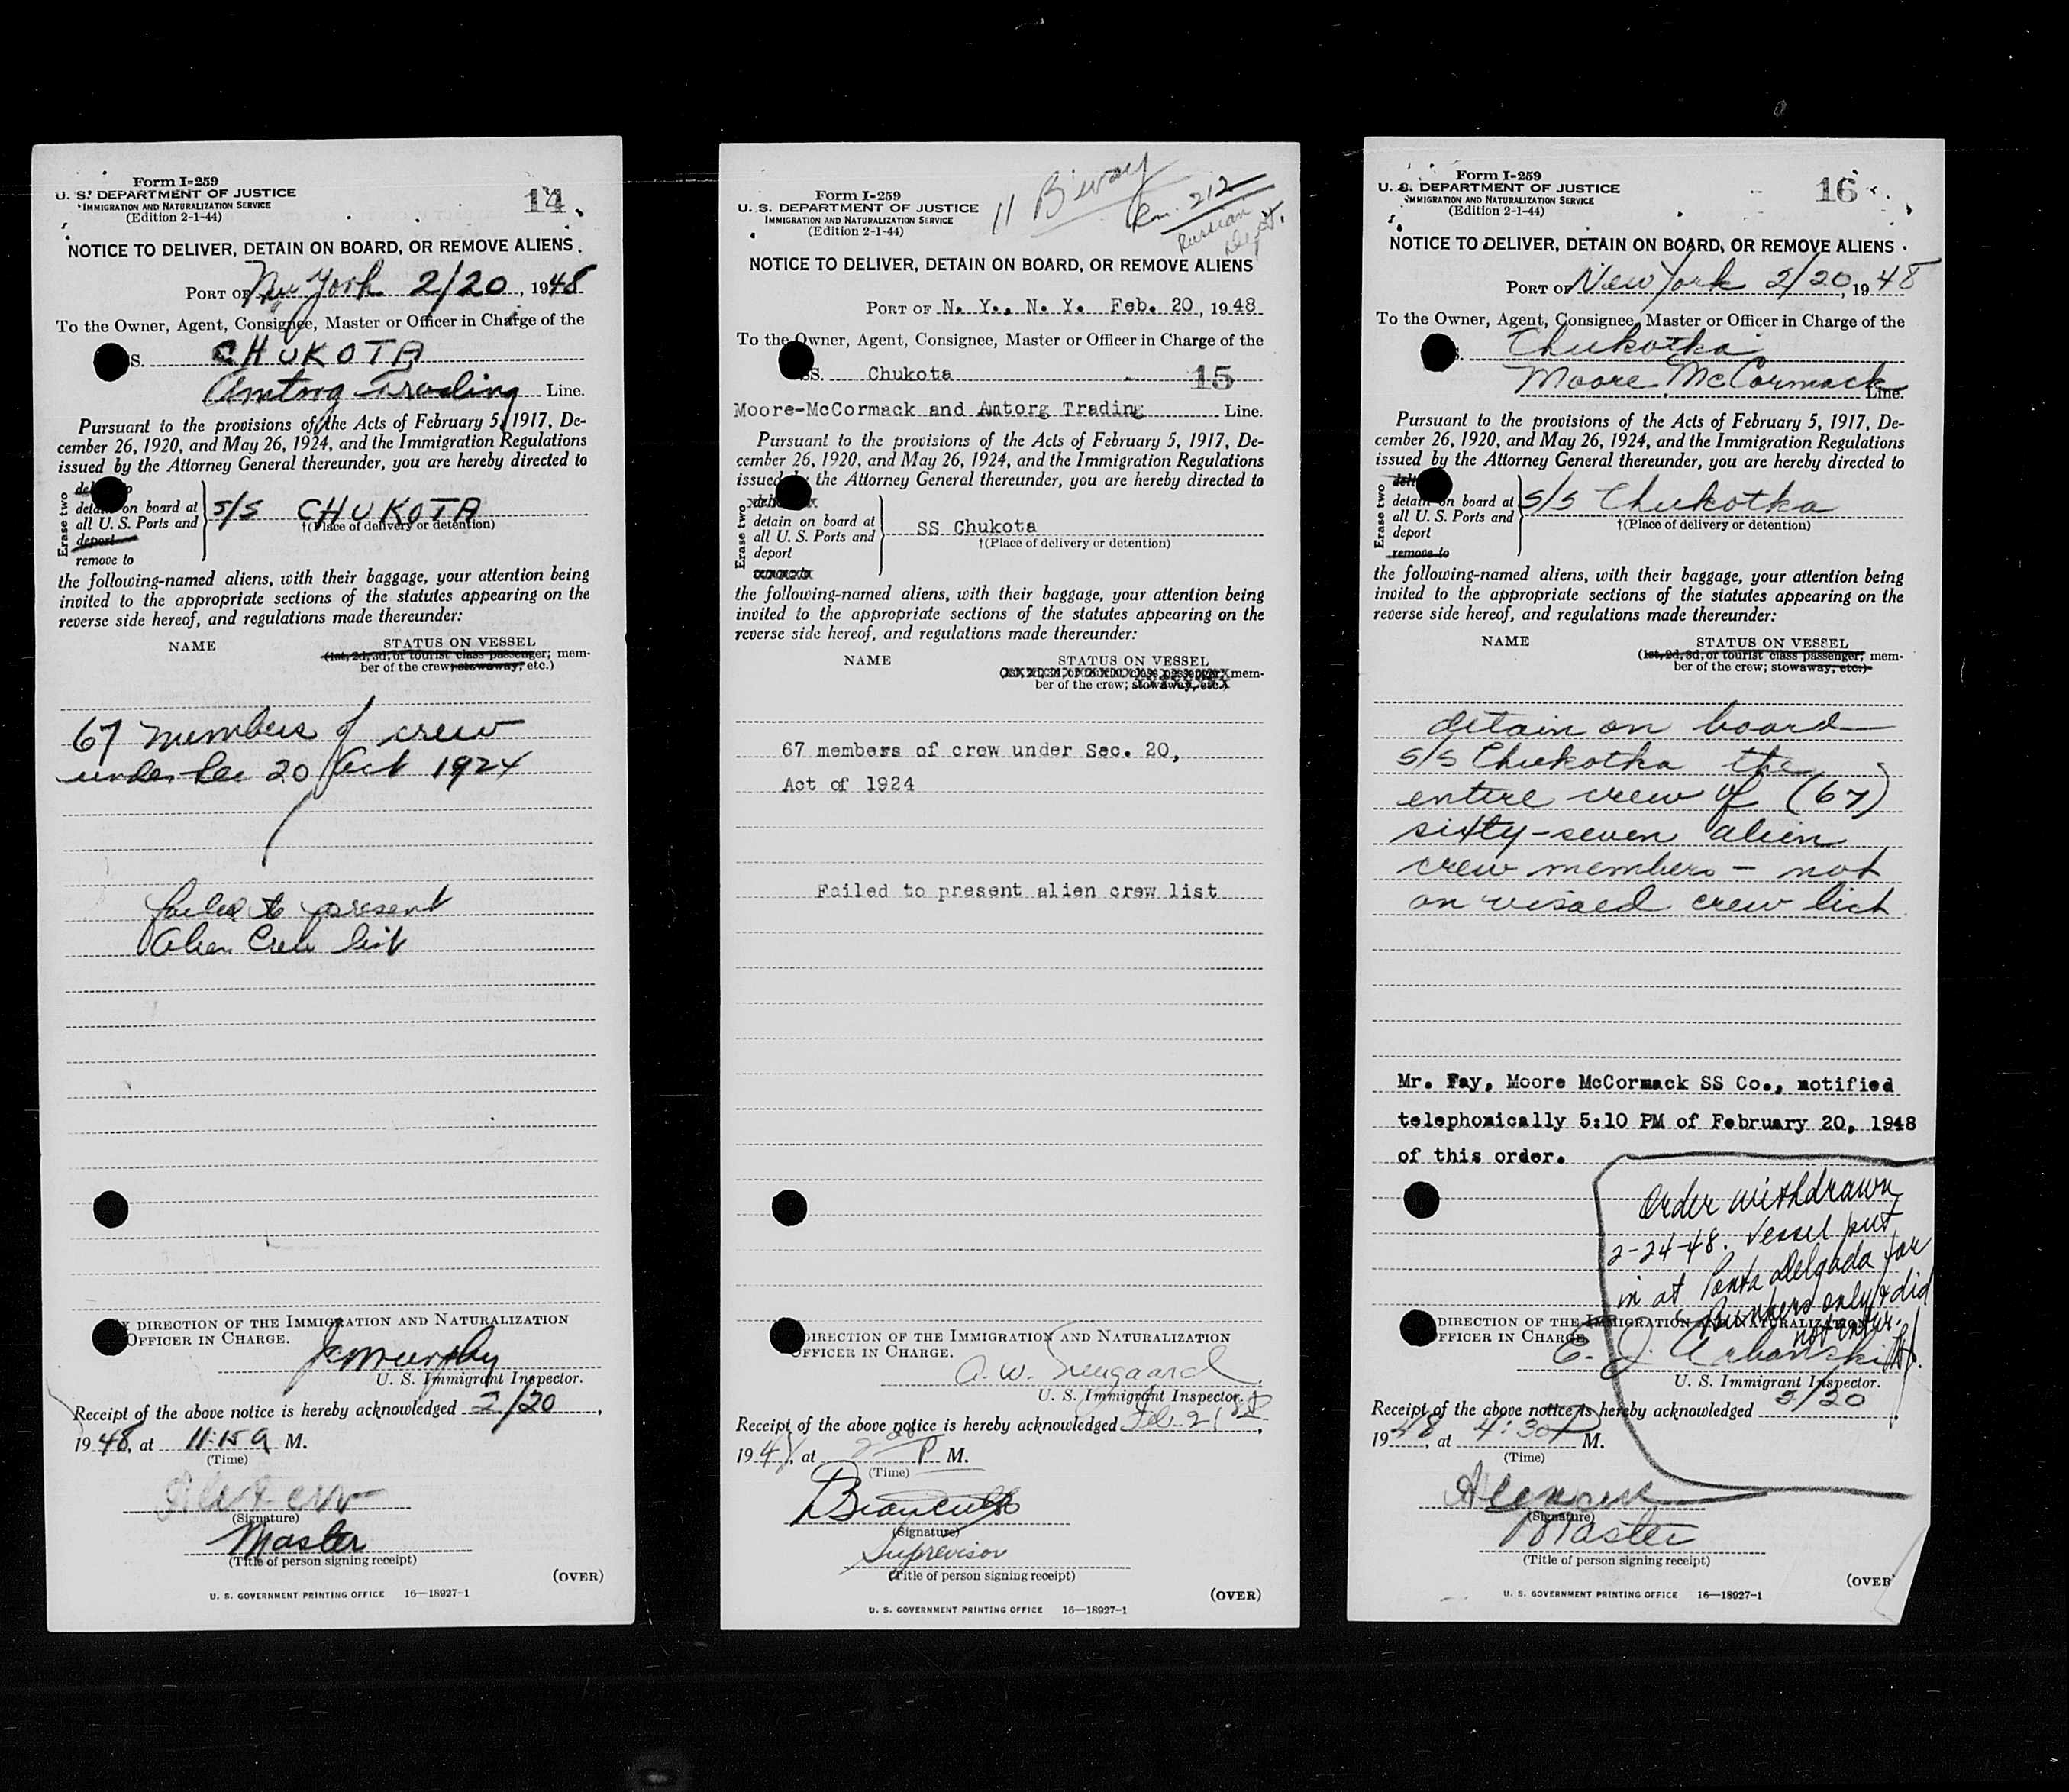 Form I-259
U. S. DEPARTMENT OF JUSTICE
IMMIGRATION AND NATURALIZATION SERVICE
(Edition 2-1-44)
14
NOTICE TO DELIVER, DETAIN ON BOARD, OR REMOVE ALIENS
PORT OF New York 2/20, 1948
To the Owner, Agent, Consignee, Master or Officer in Charge of the
S. CHUKOTA
Amtorg Trading Line.
Pursuant to the provisions of the Acts of February 5, 1917, De-
cember 26, 1920, and May 26, 1924, and the Immigration Regulations
issued by the Attorney General thereunder, you are hereby directed to
Erase two
detain on board at
all U. S. Ports and
deport
remove to
S/S CHUKOTA
†(Place of delivery or detention)
the following-named aliens, with their baggage, your attention being
invited to the appropriate sections of the statutes appearing on the
reverse side hereof, and regulations made thereunder:
NAME STATUS ON VESSEL
(1st, 2d, 3d, or tourist class passenger; mem-
ber of the crew; stowaway, etc.)
67 members of crew
under Sec 20 Act 1924
failed to present
Alien Crew list
BY DIRECTION OF THE IMMIGRATION AND NATURALIZATION
OFFICER IN CHARGE.
U. S. Immigrant Inspector.
Receipt of the above notice is hereby acknowledged 2/20,
1948, at 11:15 A M.
(Time)
(Signature)
Master
(Title of person signing receipt)
(OVER)
U. S. GOVERNMENT PRINTING OFFICE 16—18927-1
11 B'way
Rm. 212
Russian
Dept.
Form I-259
U. S. DEPARTMENT OF JUSTICE
IMMIGRATION AND NATURALIZATION SERVICE
(Edition 2-1-44)
NOTICE TO DELIVER, DETAIN ON BOARD, OR REMOVE ALIENS
PORT OF N. Y., N. Y. Feb. 20, 1948
To the Owner, Agent, Consignee, Master or Officer in Charge of the
SS. Chukota 15
Moore-McCormack and Amtorg Trading Line.
Pursuant to the provisions of the Acts of February 5, 1917, De-
cember 26, 1920, and May 26, 1924, and the Immigration Regulations
issued by the Attorney General thereunder, you are hereby directed to
Erase two
detain on board at
all U. S. Ports and
deport
SS Chukota
†(Place of delivery or detention)
the following-named aliens, with their baggage, your attention being
invited to the appropriate sections of the statutes appearing on the
reverse side hereof, and regulations made thereunder:
NAME STATUS ON VESSEL
class passenger; mem-
ber of the crew; stowaway, etc.)
67 members of crew under Sec. 20,
Act of 1924
Failed to present alien crew list
DIRECTION OF THE IMMIGRATION AND NATURALIZATION
OFFICER IN CHARGE.
U. S. Immigrant Inspector.
Receipt of the above notice is hereby acknowledged Feb 21
1948, at P M.
(Time)
(Signature)
Suprevisor
(Title of person signing receipt)
(OVER)
U. S. GOVERNMENT PRINTING OFFICE 16—18927-1
Form I-259
U. S. DEPARTMENT OF JUSTICE
IMMIGRATION AND NATURALIZATION SERVICE
(Edition 2-1-44)
16
NOTICE TO DELIVER, DETAIN ON BOARD, OR REMOVE ALIENS
PORT OF New York 2/20, 1948
To the Owner, Agent, Consignee, Master or Officer in Charge of the
S. Chukotka
Moore McCormack Line.
Pursuant to the provisions of the Acts of February 5, 1917, De-
cember 26, 1920, and May 26, 1924, and the Immigration Regulations
issued by the Attorney General thereunder, you are hereby directed to
Erase two
detain on board at
all U. S. Ports and
deport
remove to
S/S Chukotka
†(Place of delivery or detention)
the following-named aliens, with their baggage, your attention being
invited to the appropriate sections of the statutes appearing on the
reverse side hereof, and regulations made thereunder:
NAME STATUS ON VESSEL
(1st, 2d, 3d, or tourist class passenger; mem-
ber of the crew; stowaway, etc.)
detain on board
S/S Chukotka the
entire crew of (67)
sixty-seven alien
crew members - not
on visaed crew list
Mr. Fay, Moore McCormack SS Co., notified
telephonically 5:10 PM of February 20, 1948
of this order.
Order withdrawn
2-24-48. Vessel put
in at Ponta Delgada for
Bunkers only & did
not enter.
DIRECTION OF THE IMMIGRATION AND NATURALIZATION
OFFICER IN CHARGE.
E. J. Urbanski
U. S. Immigrant Inspector.
Receipt of the above notice is hereby acknowledged 2/20
1948, at 4:30 P M.
(Time)
(Signature)
Master
(Title of person signing receipt)
(OVER)
U. S. GOVERNMENT PRINTING OFFICE 16—18927-1